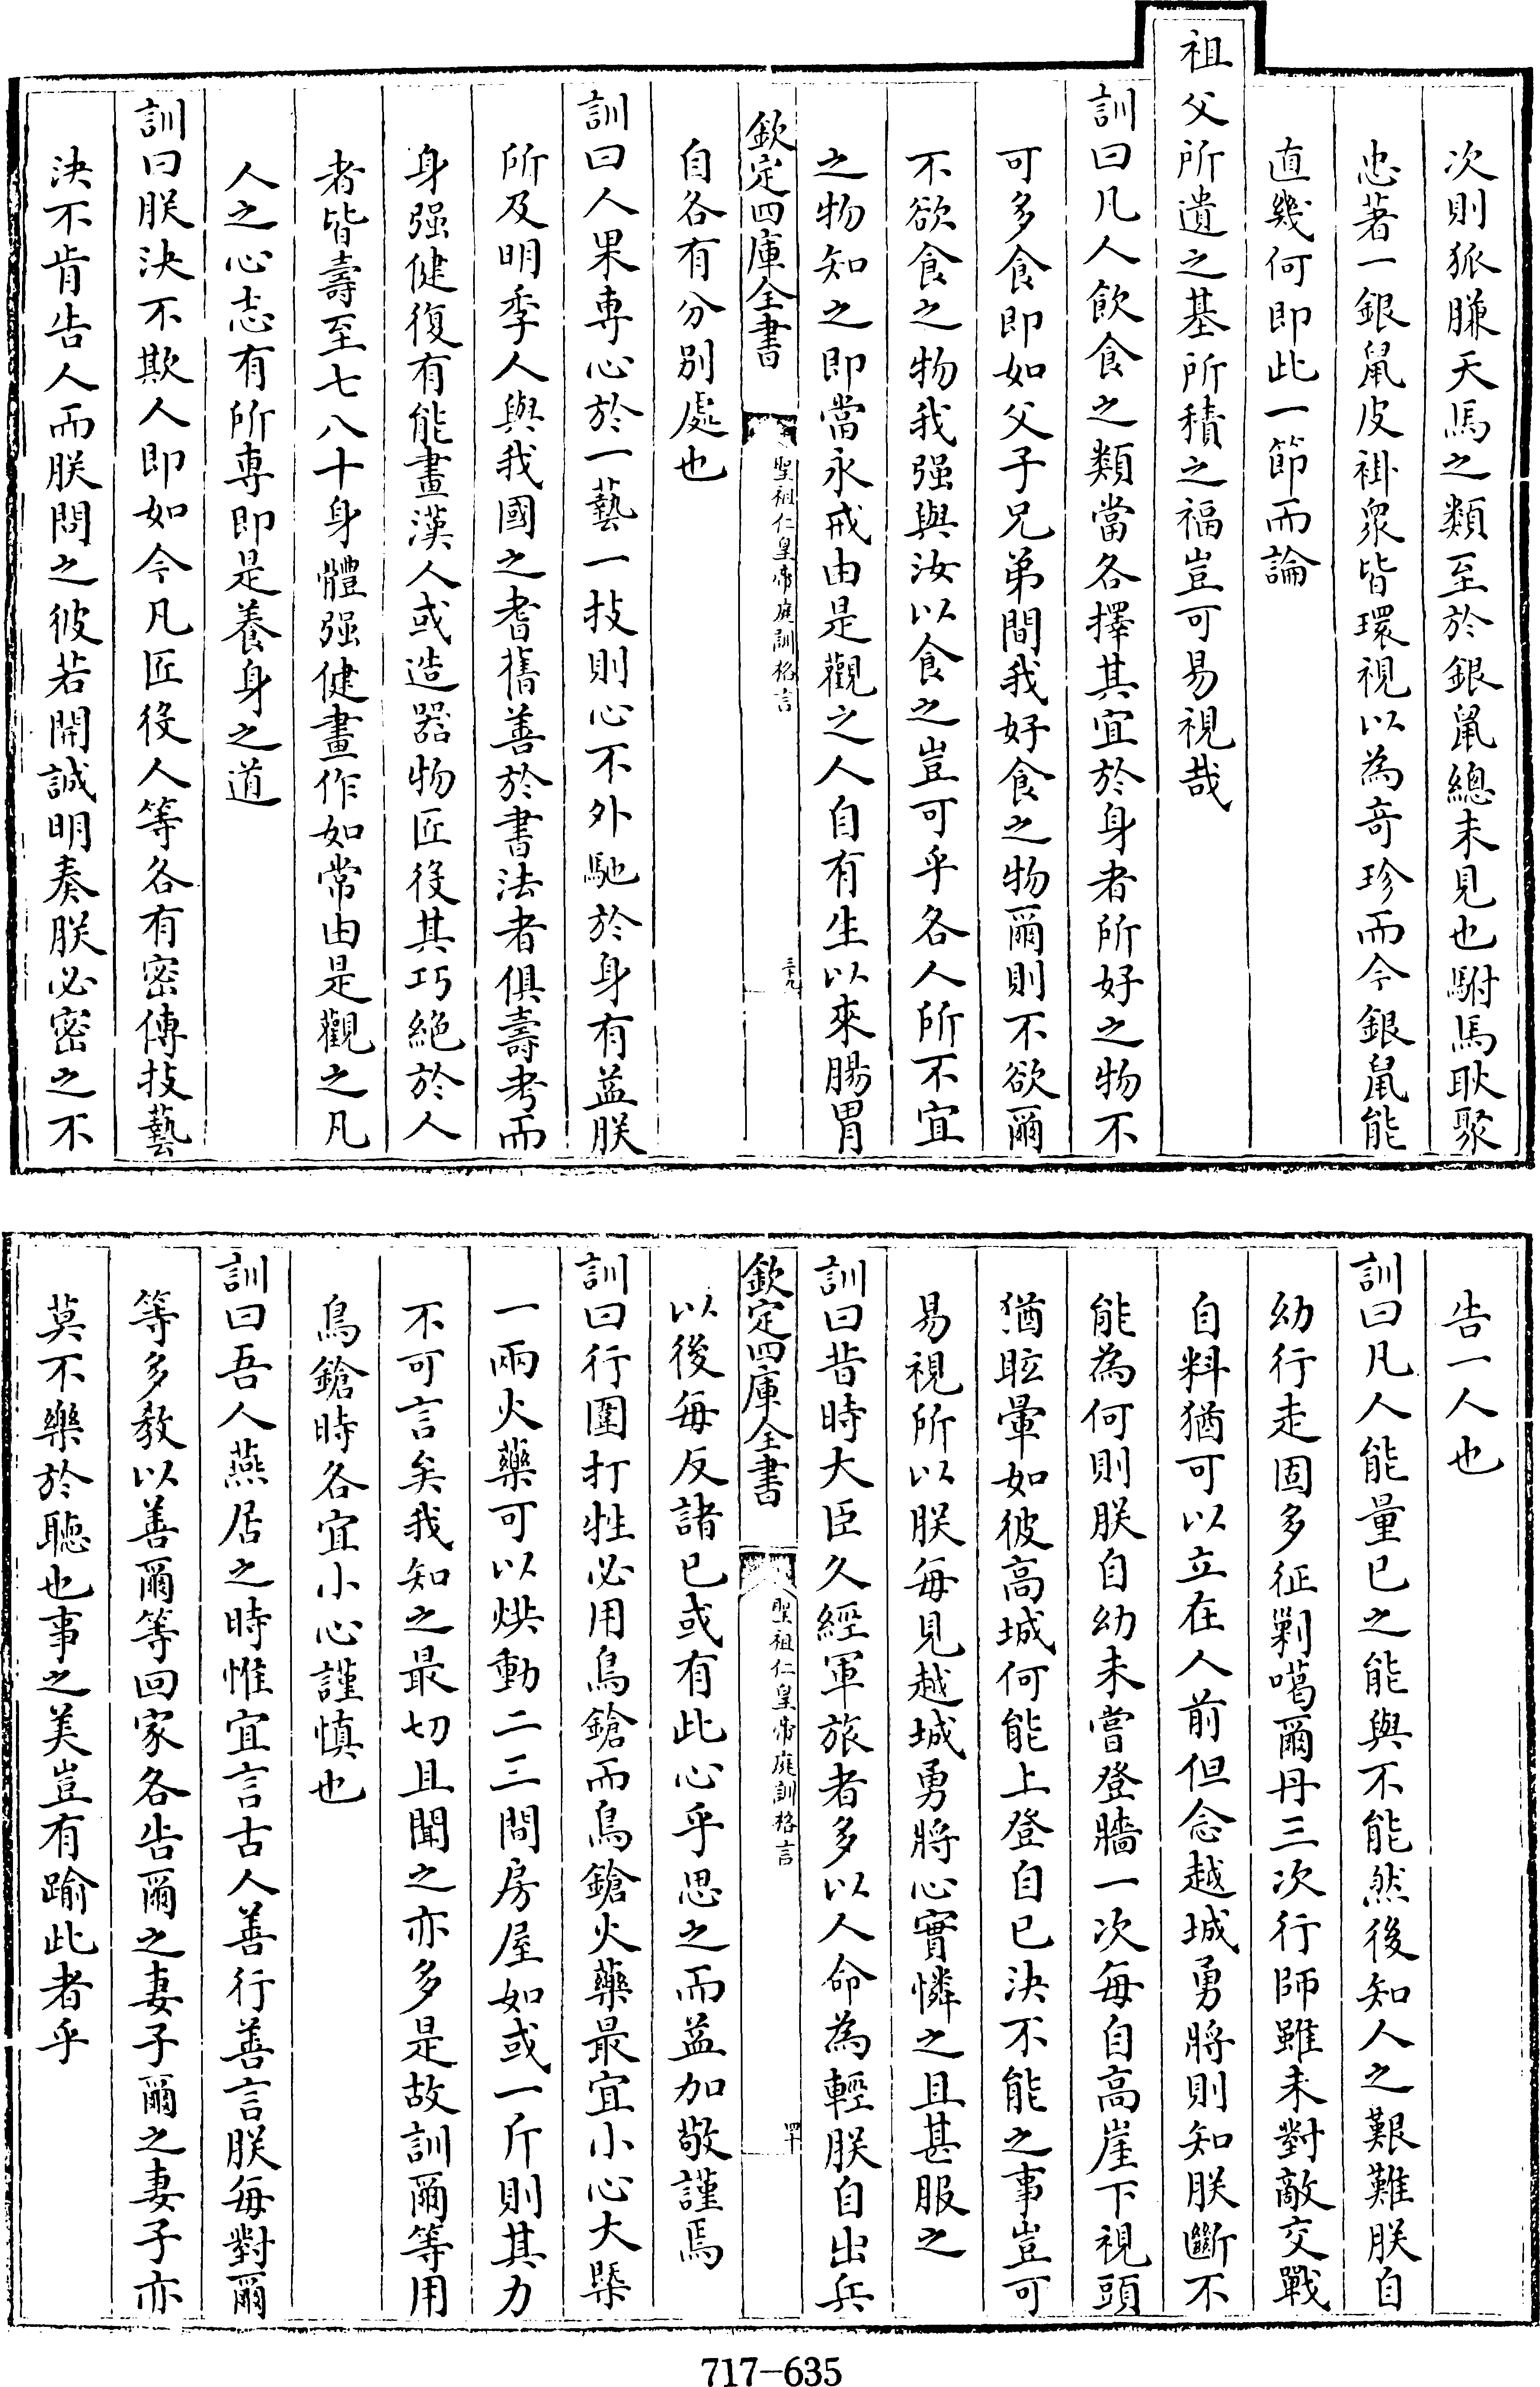 次則狐膁天馬之類至於銀鼠總未見也駙馬耿聚
忠著一銀鼠皮褂衆皆環視以為竒珍而今銀鼠能
直幾何即此一節而論
祖父所遺之基所積之福豈可易視哉
訓曰凡人飲食之類當各擇其宜於身者所好之物不
可多食即如父子兄弟間我好食之物爾則不欲爾
不欲食之物我强與汝以食之豈可乎各人所不宜
之物知之即當永戒由是觀之人自有生以來腸胃
欽定四庫全書
聖祖仁皇帝庭訓格言
三十九
自各有分別處也
訓曰人果專心於一藝一技則心不外馳於身有益朕
所及明季人與我國之耆舊善於書法者俱壽考而
身强健復有能畫漢人或造器物匠役其巧絶於人
者皆壽至七八十身體强健畫作如常由是觀之凡
人之心志有所專即是養身之道
訓曰朕決不欺人即如今凡匠役人等各有密傳技藝
決不肯告人而朕問之彼若開誠明奏朕必密之不
告一人也
訓曰凡人能量已之能與不能然後知人之艱難朕自
幼行走固多征剿噶爾丹三次行師雖未對敵交戰
自料猶可以立在人前但念越城勇將則知朕斷不
能為何則朕自幼未嘗登牆一次每自高崖下視頭
猶眩暈如彼高城何能上登自已決不能之事豈可
易視所以朕每見越城勇將心實憐之且甚服之
訓曰昔時大臣久經軍旅者多以人命為輕朕自出兵
欽定四庫全書
聖祖仁皇帝庭訓格言
四十
以後每反諸已或有此心乎思之而益加敬謹焉
訓曰行圍打牲必用鳥鎗而鳥鎗火藥最宜小心大槩
一兩火藥可以烘動二三間房屋如或一斤則其力
不可言矣我知之最切且聞之亦多是故訓爾等用
鳥鎗時各宜小心謹慎也
訓曰吾人燕居之時惟宜言古人善行善言朕每對爾
等多教以善爾等回家各告爾之妻子爾之妻子亦
莫不樂於聽也事之美豈有踰此者乎
717-635